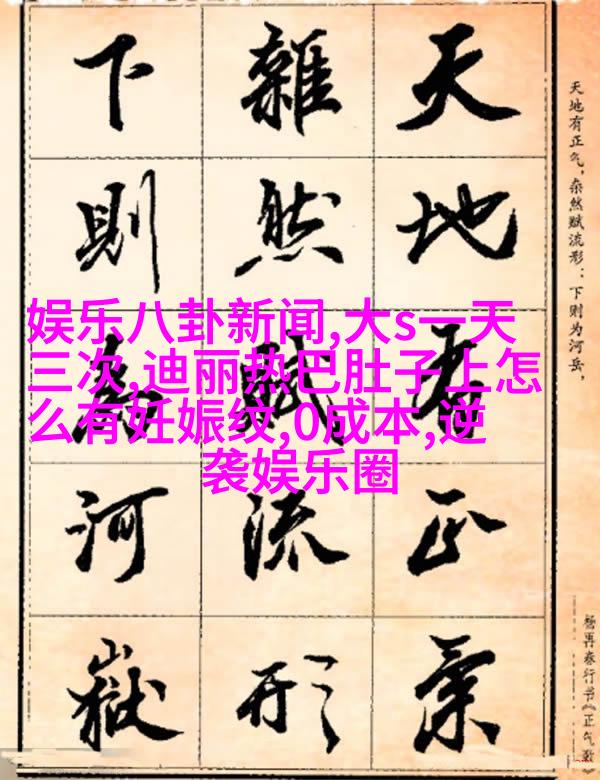 天地有正氣
雜然賦流形
下則為河嶽
天地有正气，杂然赋流形：下则为河岳，
杨再春行书《正气歌》
娱乐八卦新闻,大s一天
三次,迪丽热巴肚子上怎
么有妊娠纹,0成本,逆
袭娱乐圈